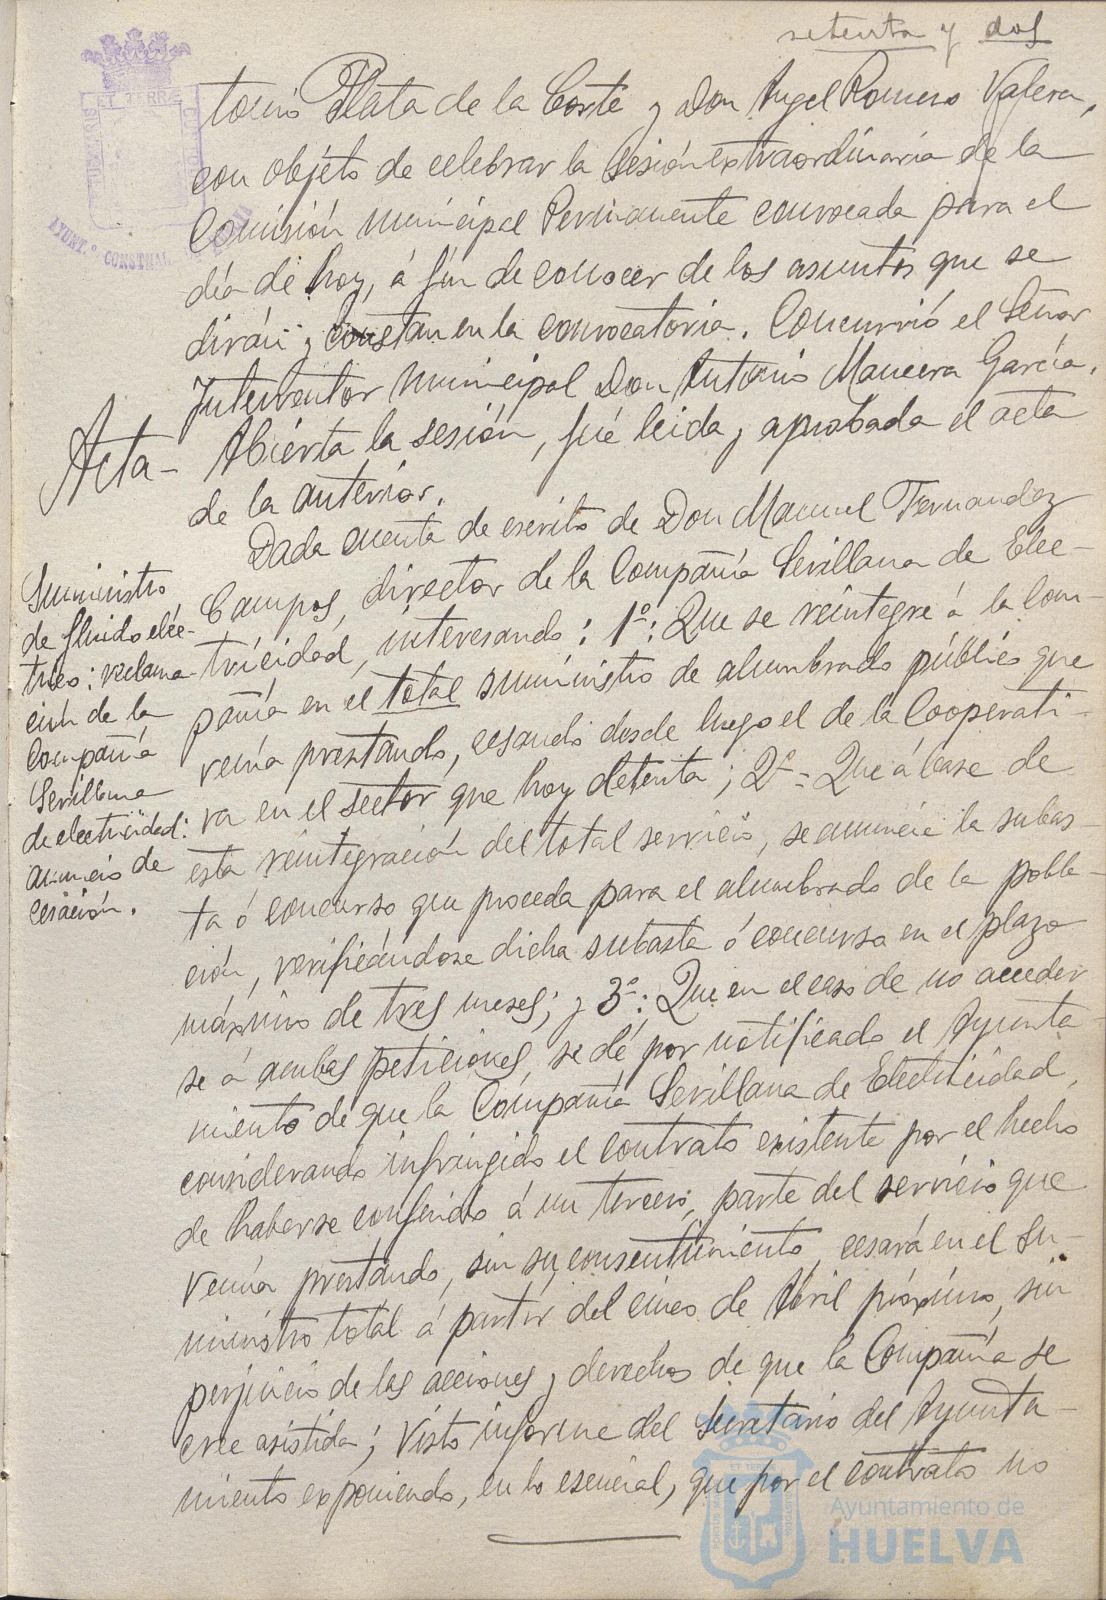 setenta y dos
tonio Plata de la Corte y Don Angel Romero Valera,
con objeto de celebrar la sesión extraordinaria de la
Comisión Municipal Permanente convocada para el
día de hoy, á fin de conocer de los asuntos que se
dirán y constan en la convocatoria. Concurrió el Señor
Interventor Municipal Don Antonio Mancera García.
Acta- Abierta la sesión, fué leida y aprobada el acta
de la anterior.
Dada cuenta de escrito de Don Manuel Fernandez
Campos, director de la Compañía Sevillana de Elec-
tricidad, interesando: 1º: Que se reintegre á la Com-
pañía en el total suministro de alumbrado público que
venía prestando, cesando desde luego el de la Cooperati-
va en el sector que hoy detenta; 2º- Que á base de
esta reintegración del total servicio, se anuncie la subas-
ta ó concurso que proceda para el alumbrado de la pobla-
ción, verificándose dicha subasta ó concurso en el plazo
máximo de tres meses; y 3º: Que en el caso de no acceder
se á ambas peticiones, se dé por notificado el Ayunta-
miento de que la Compañía Sevillana de Electricidad,
considerando infringido el contrato existente por el hecho
de haberse conferido á un tercero, parte del servicio que
venía prestando, sin su consentimiento, cesará en el su-
ministro total á partir del cinco de Abril próximo, sin
perjuicio de las acciones y derechos de que la Compañía se
cree asistida; Visto informe del Secretario del Ayunta-
miento exponiendo, en lo esencial, que por el contrato no
Suministro
de fluido eléc-
trico: reclama-
ción de la
Compañía
Sevillana
de electricidad:
anuncio de
cesación.
ET TERRÆ
AYUNT.º CONSTNAL
Ayuntamiento de
HUELVA